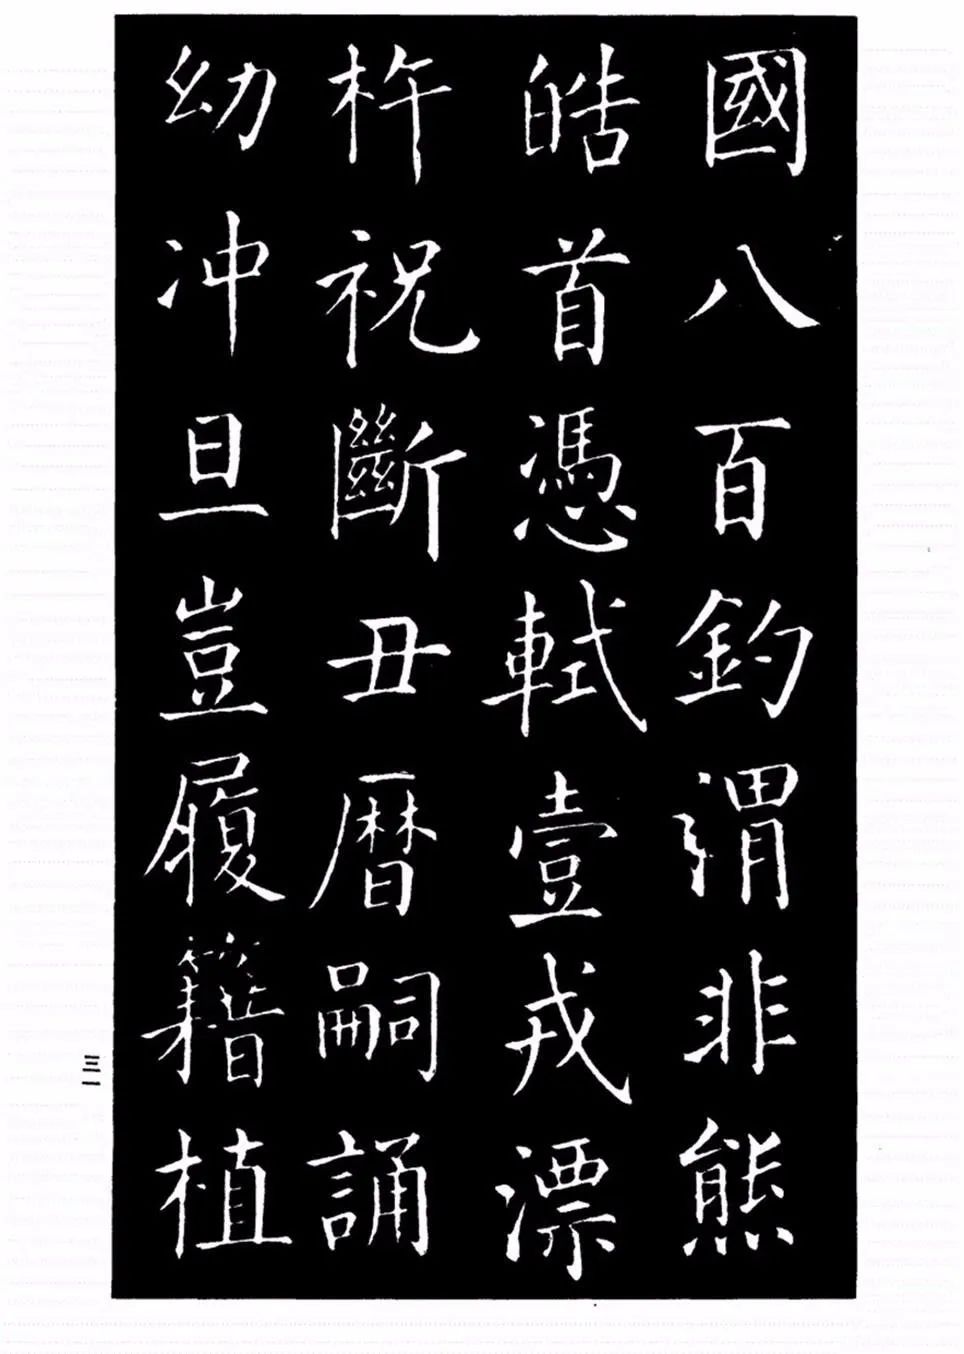 國八百釣渭非熊
皓首憑軾壹戎漂
杵祝斷丑暦嗣誦
幼冲旦豈履籍植
三一